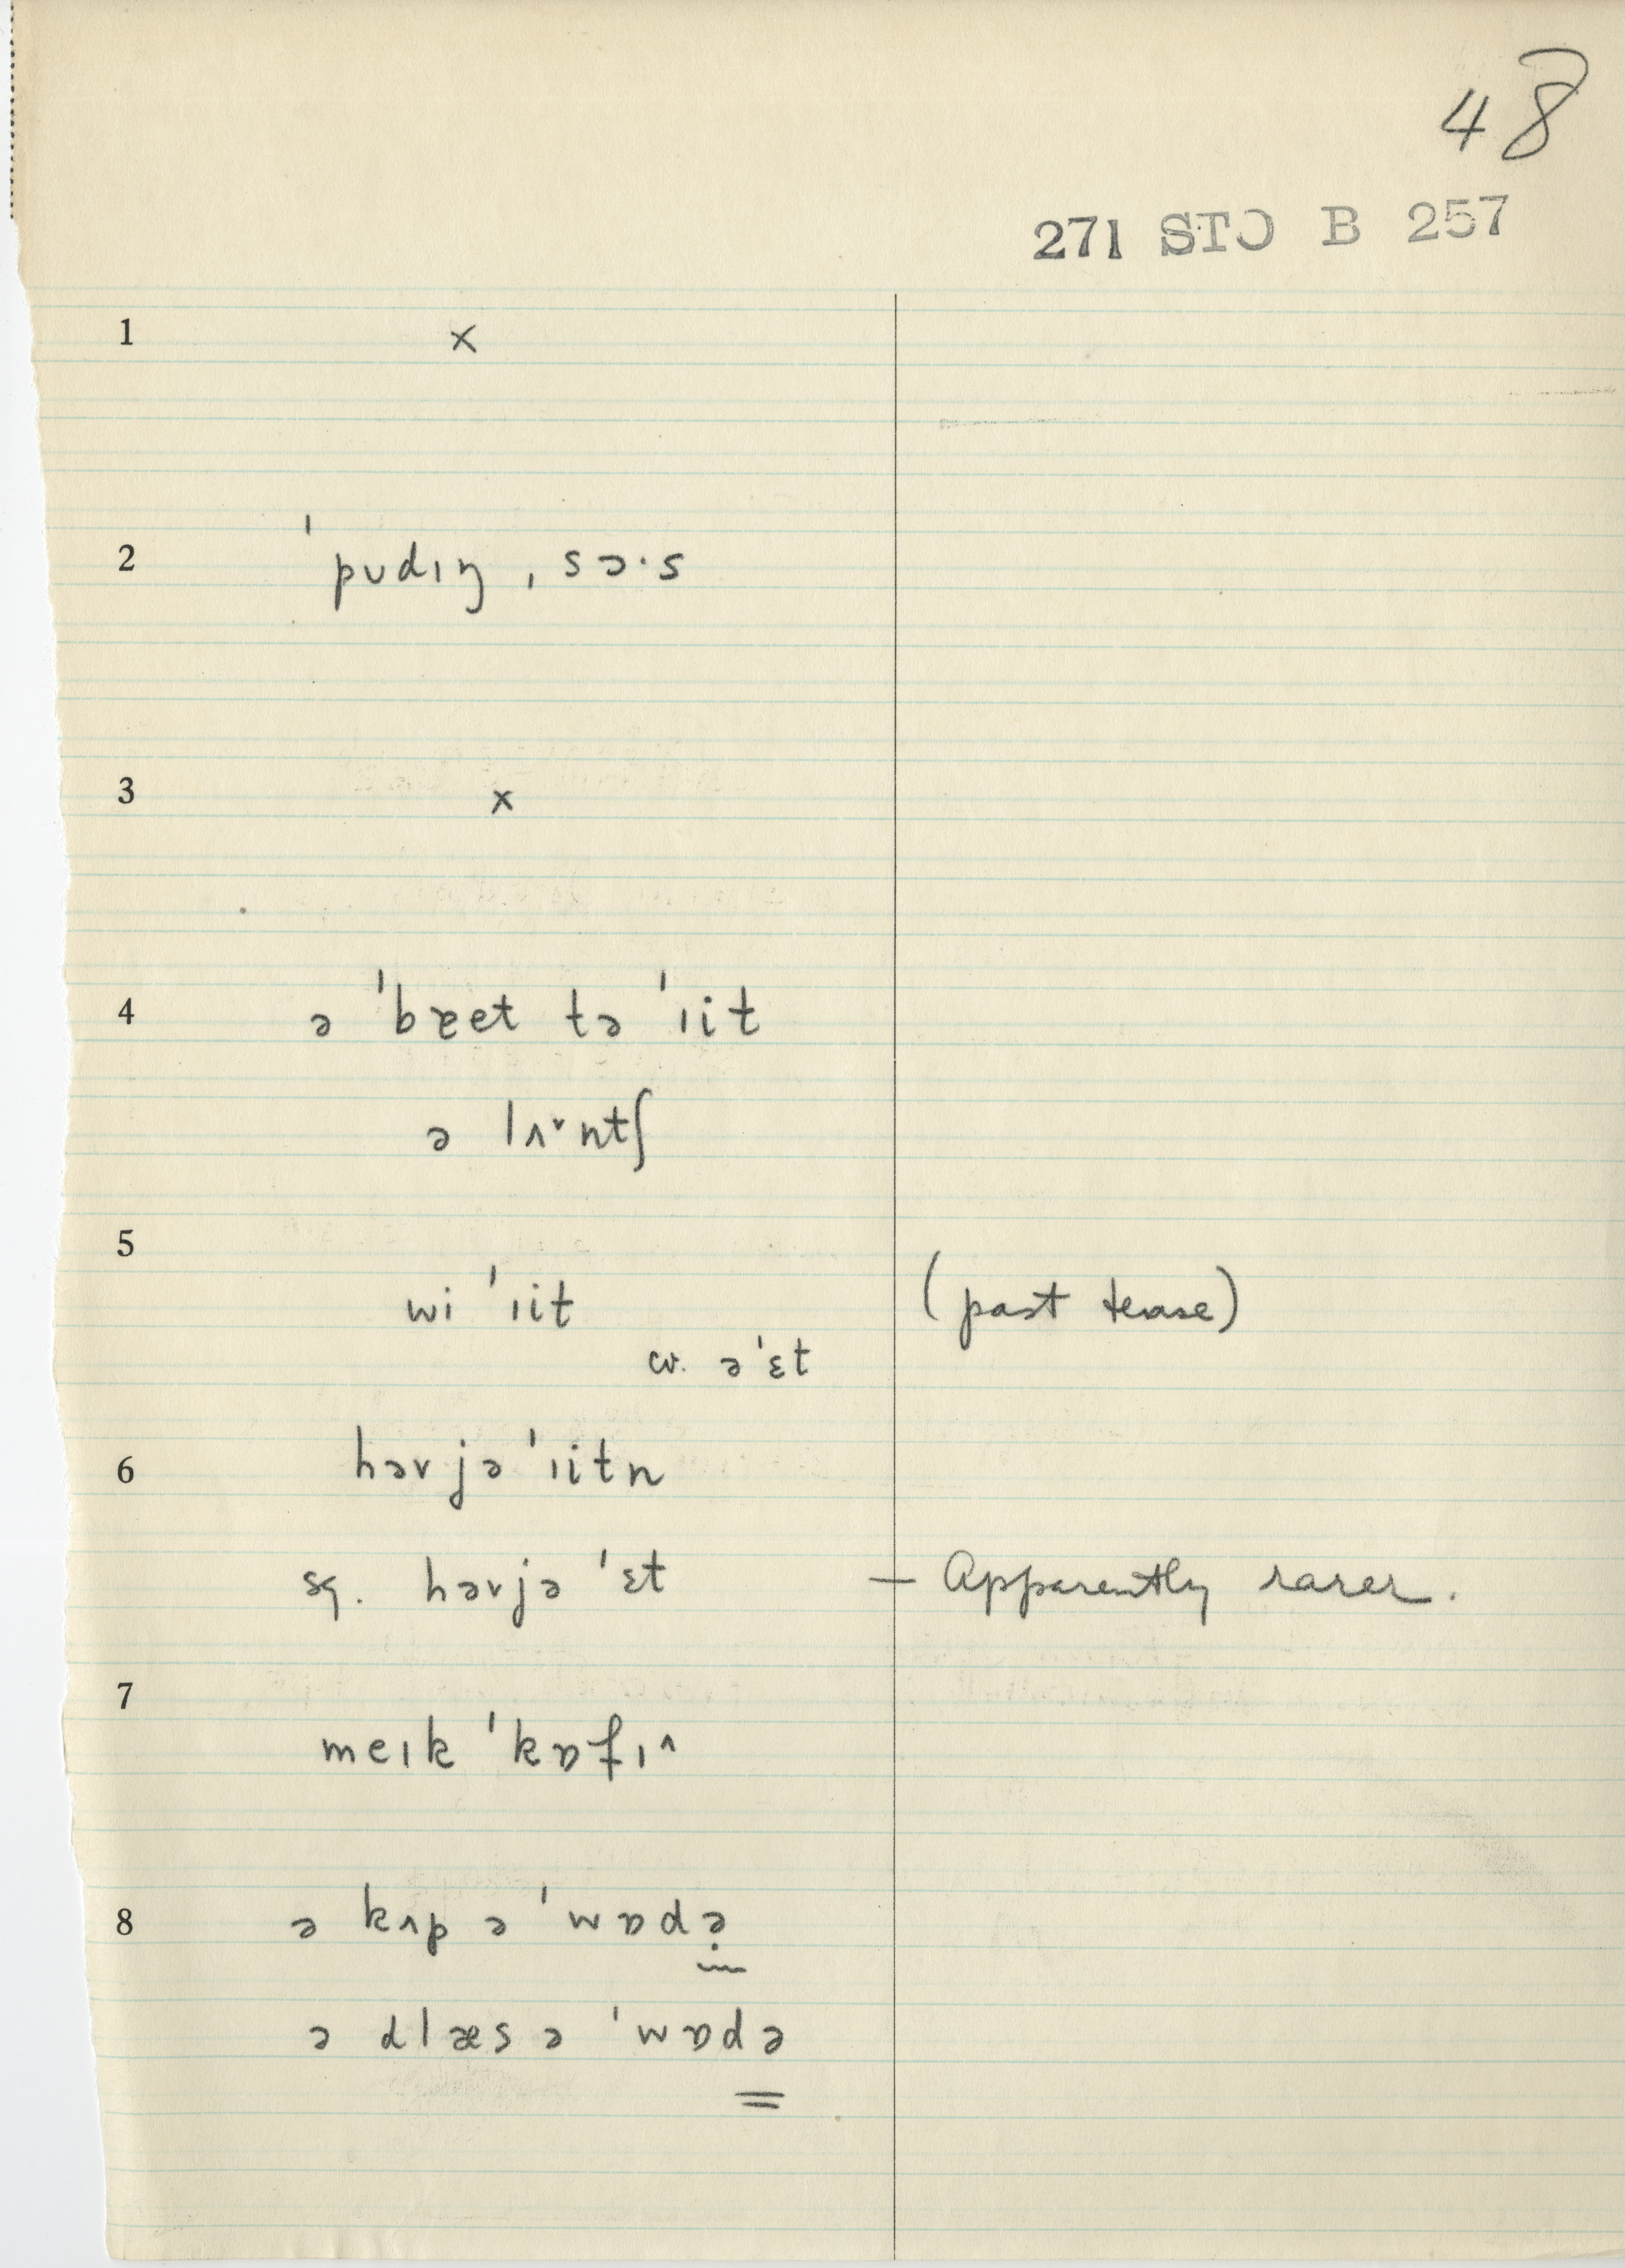 48
271 STO B 257
1 ×
2 ˈpʊdɪŋ ˌsɔ·s
3 ×
4 ə ˈbɐet tə ˈɪit
ə lʌ˅ntʃ
5 wi ˈɪit (past tense)
cv. əˈɛt
6 həvjəˈɪitn
sq. həvjə ˈɛt — Apparently rarer.
7 meɪk ˈkɒfɪ^
8 ə kʌp ə ˈwɒdə̣
ə ɡlæs ə ˈwɒdə